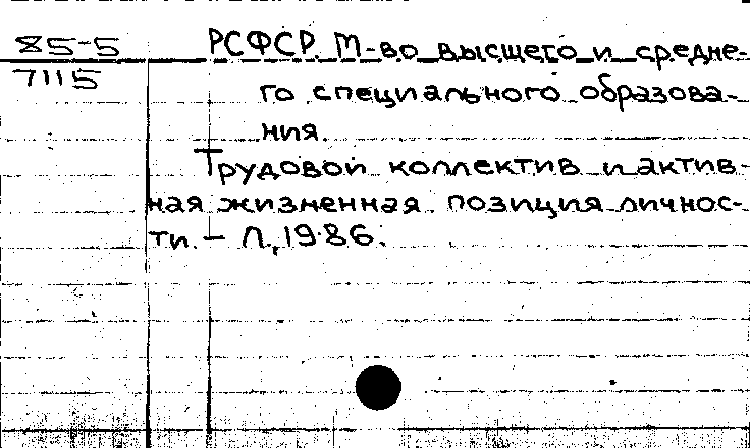 85-5
7115
РСФСР. М-во высшего и средне-
го специального образова-
ния.
Трудовой коллектив и актив-
ная жизненная позиция личнос-
ти. – Л., 1986.